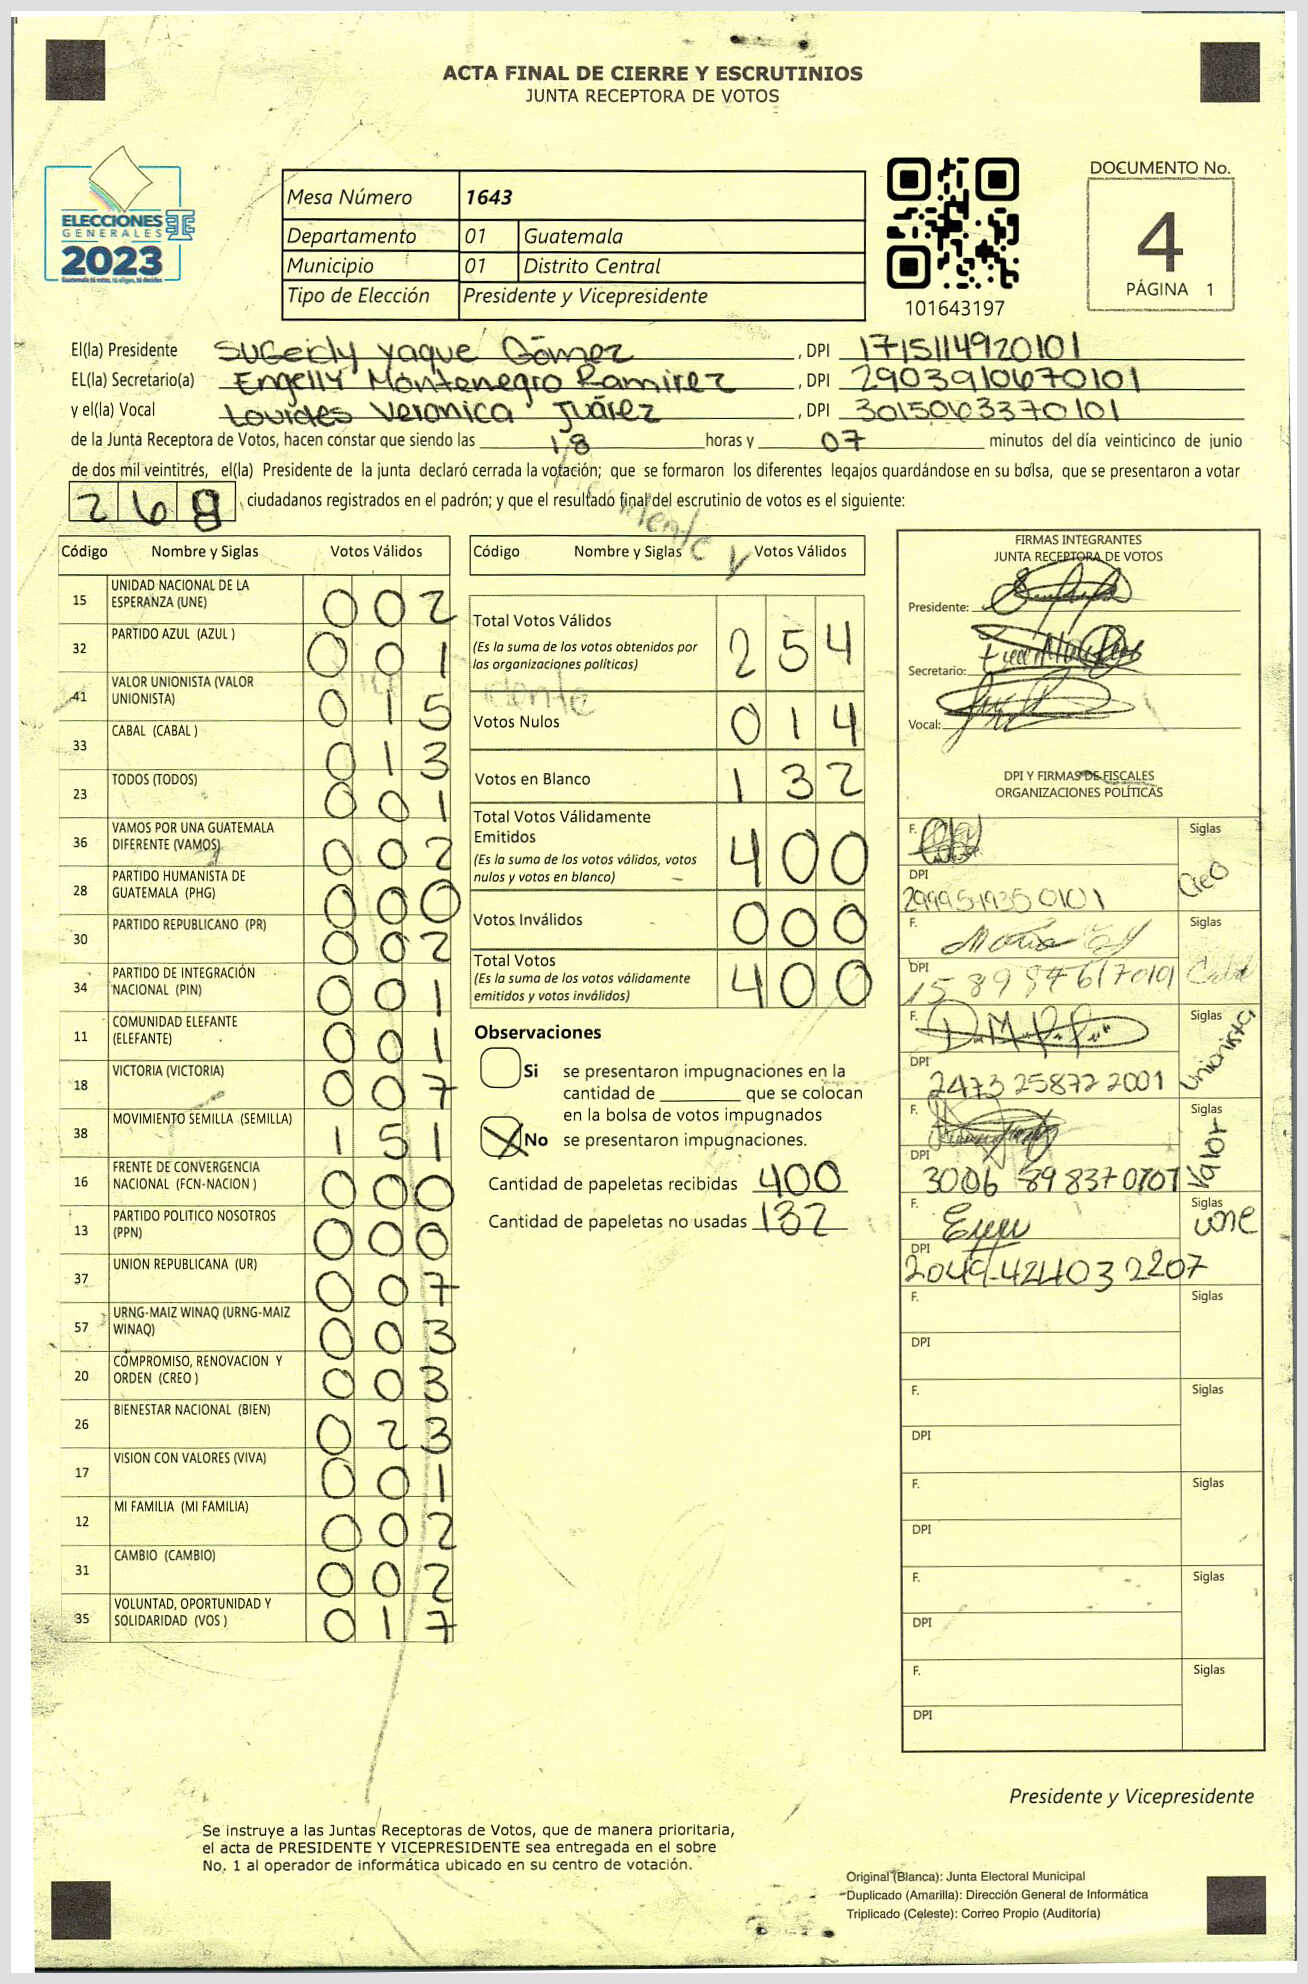 ACTA FINAL DE CIERRE Y ESCRUTINIOS
JUNTA RECEPTORA DE VOTOS
ELECCIONES
GENERALES
2023
Mesa Número 1643
Departamento 01 Guatemala
Municipio 01 Distrito Central
Tipo de Elección Presidente y Vicepresidente
101643197
DOCUMENTO No.
4
PÁGINA 1
El(la) Presidente Sugeidy Yaque Gómez , DPI 1715114920101
EL(la) Secretario(a) Engelly Montenegro Ramirez , DPI 2903910670101
y el(la) Vocal Lourdes Veronica Juárez , DPI 3015063370101
de la Junta Receptora de Votos, hacen constar que siendo las 18 horas y 07 minutos del día veinticinco de junio
de dos mil veintitrés, el(la) Presidente de la junta declaró cerrada la votación; que se formaron los diferentes legajos guardándose en su bolsa, que se presentaron a votar
268 ciudadanos registrados en el padrón; y que el resultado final del escrutinio de votos es el siguiente:
Código Nombre y Siglas Votos Válidos
15 UNIDAD NACIONAL DE LA ESPERANZA (UNE) 002
32 PARTIDO AZUL (AZUL ) 001
41 VALOR UNIONISTA (VALOR UNIONISTA) 015
33 CABAL (CABAL ) 013
23 TODOS (TODOS) 001
36 VAMOS POR UNA GUATEMALA DIFERENTE (VAMOS) 002
28 PARTIDO HUMANISTA DE GUATEMALA (PHG) 000
30 PARTIDO REPUBLICANO (PR) 002
34 PARTIDO DE INTEGRACIÓN NACIONAL (PIN) 001
11 COMUNIDAD ELEFANTE (ELEFANTE) 001
18 VICTORIA (VICTORIA) 007
38 MOVIMIENTO SEMILLA (SEMILLA) 151
16 FRENTE DE CONVERGENCIA NACIONAL (FCN-NACION ) 000
13 PARTIDO POLITICO NOSOTROS (PPN) 000
37 UNION REPUBLICANA (UR) 007
57 URNG-MAIZ WINAQ (URNG-MAIZ WINAQ) 003
20 COMPROMISO, RENOVACION Y ORDEN (CREO ) 003
26 BIENESTAR NACIONAL (BIEN) 023
17 VISION CON VALORES (VIVA) 001
12 MI FAMILIA (MI FAMILIA) 002
31 CAMBIO (CAMBIO) 002
35 VOLUNTAD, OPORTUNIDAD Y SOLIDARIDAD (VOS ) 017
Código Nombre y Siglas Votos Válidos
Total Votos Válidos 254
(Es la suma de los votos obtenidos por
las organizaciones políticas)
Votos Nulos 014
Votos en Blanco 132
Total Votos Válidamente
Emitidos 400
(Es la suma de los votos válidos, votos
nulos y votos en blanco)
Votos Inválidos 000
Total Votos 400
(Es la suma de los votos válidamente
emitidos y votos inválidos)
Observaciones
Si se presentaron impugnaciones en la
cantidad de ________ que se colocan
en la bolsa de votos impugnados
No se presentaron impugnaciones.
Cantidad de papeletas recibidas 400
Cantidad de papeletas no usadas 132
FIRMAS INTEGRANTES
JUNTA RECEPTORA DE VOTOS
Presidente:
Secretario:
Vocal:
DPI Y FIRMAS DE FISCALES
ORGANIZACIONES POLÍTICAS
F. Siglas
DPI Creo
F. Siglas
DPI
F. Siglas
DPI Unionista
2473 25872 2001
F. Siglas
DPI Valor
3006 89837 0101
F. Siglas
DPI une
2049-42403 2207
F. Siglas
DPI
F. Siglas
DPI
F. Siglas
DPI
F. Siglas
DPI
F. Siglas
DPI
Presidente y Vicepresidente
Se instruye a las Juntas Receptoras de Votos, que de manera prioritaria,
el acta de PRESIDENTE Y VICEPRESIDENTE sea entregada en el sobre
No. 1 al operador de informática ubicado en su centro de votación.
Original (Blanca): Junta Electoral Municipal
Duplicado (Amarilla): Dirección General de Informática
Triplicado (Celeste): Correo Propio (Auditoría)